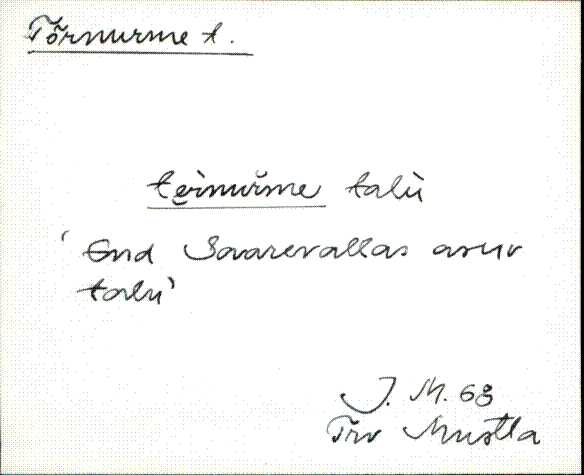 Tõrnurme t.
te̮rnurme talù
' End Saarevallas asuv
talu'
J. M. 68
Trv Mustla